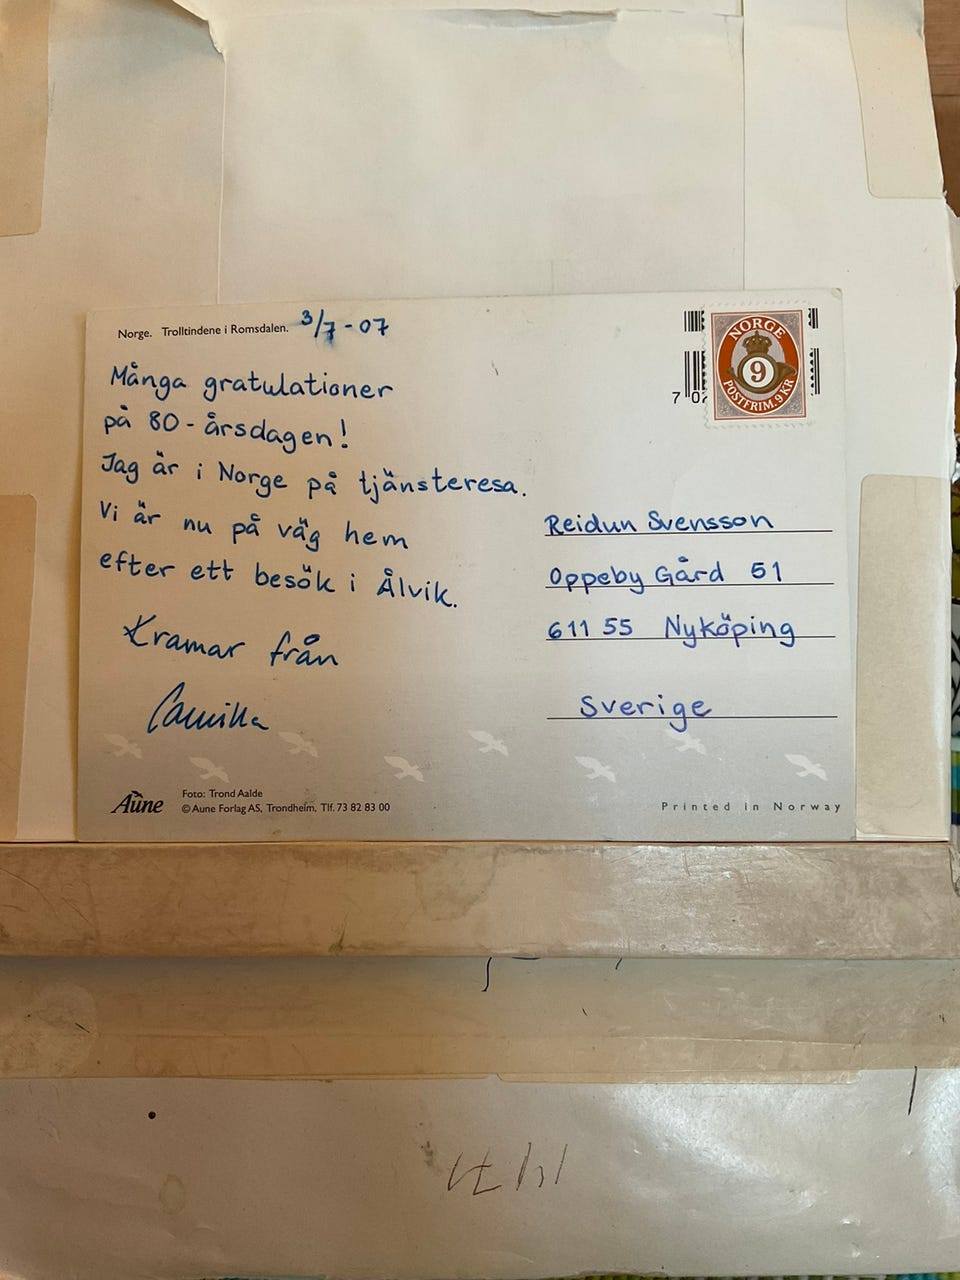 Norge. Trolltindene i Romsdalen. 3/7-07
Många gratulationer
på 80-årsdagen!
Jag är i Norge på tjänsteresa.
Vi är nu på väg hem
efter ett besök i Ålvik.
Kramar från
Camilla
NORGE
9
POSTFRIM. 9 KR
7 02
Reidun Svensson
Oppeby Gård 51
611 55 Nyköping
Sverige
Aune
Foto: Trond Aalde
© Aune Forlag AS, Trondheim, Tlf. 73 82 83 00
Printed in Norway